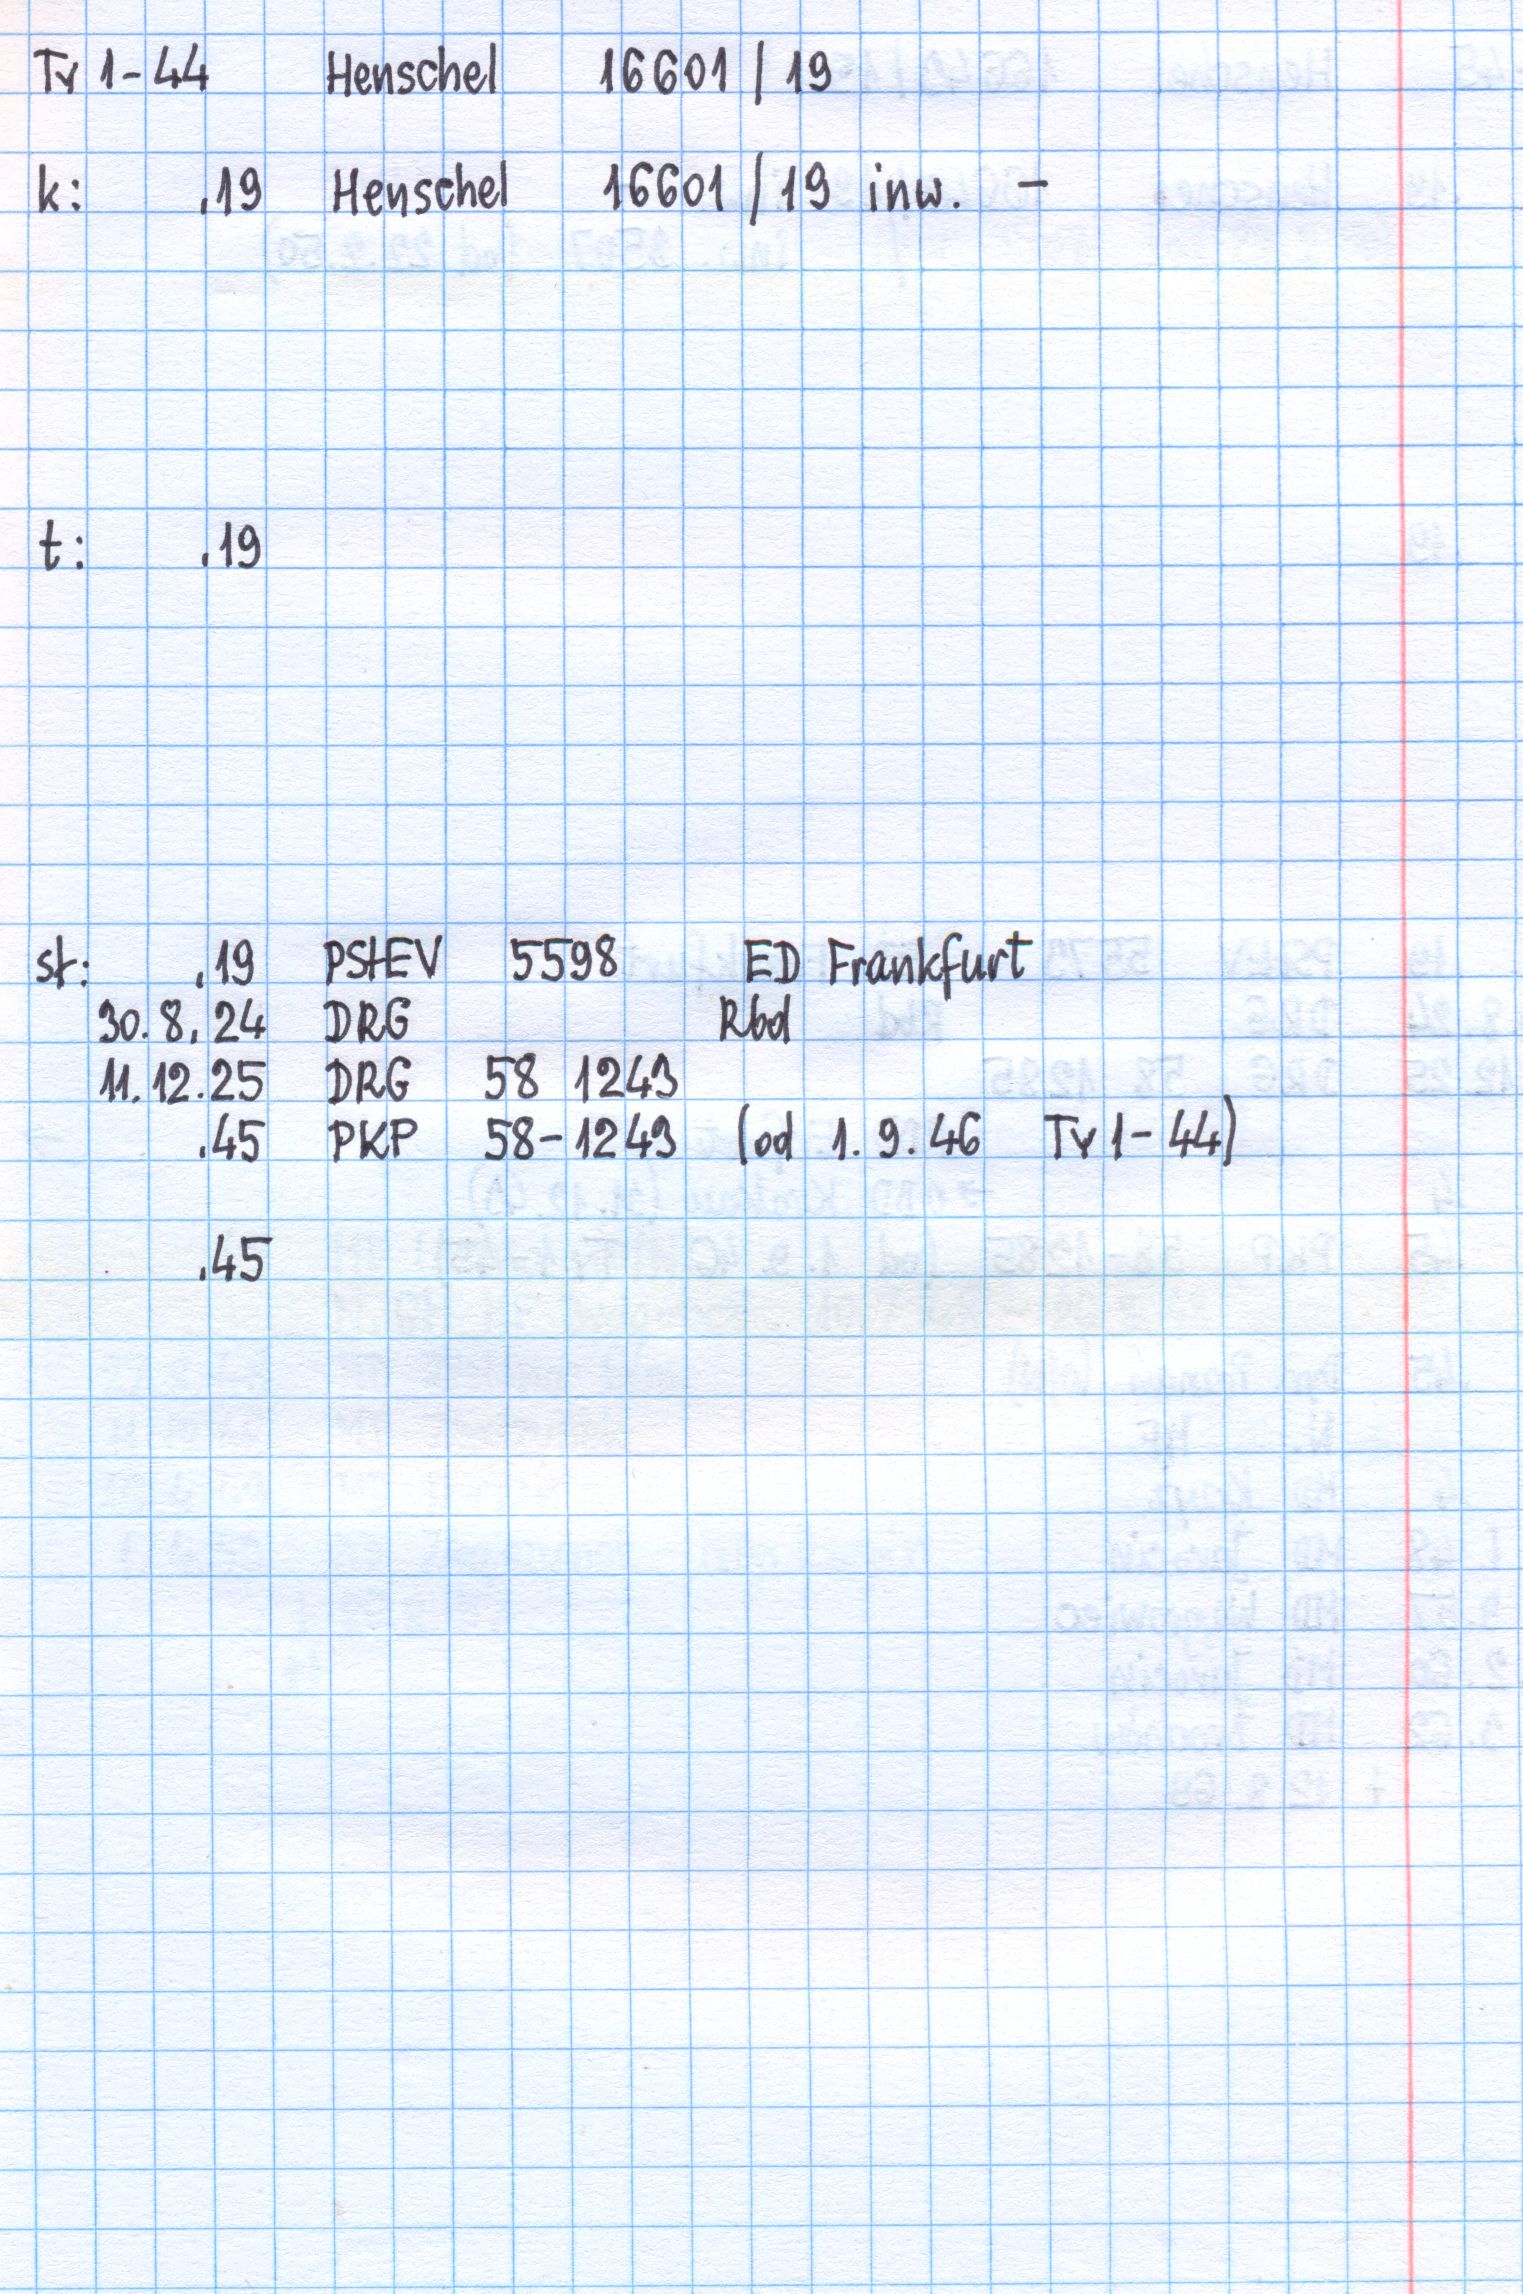 Tr 1-44 Henschel 16601 / 19
k: .19 Henschel 16601 / 19 inw. -
t: .19
st: .19 PStEV 5598 ED Frankfurt
30.8.24 DRG Rbd
11.12.25 DRG 58 1243
.45 PKP 58-1243 (od 1.9.46 Tr 1-44)
.45